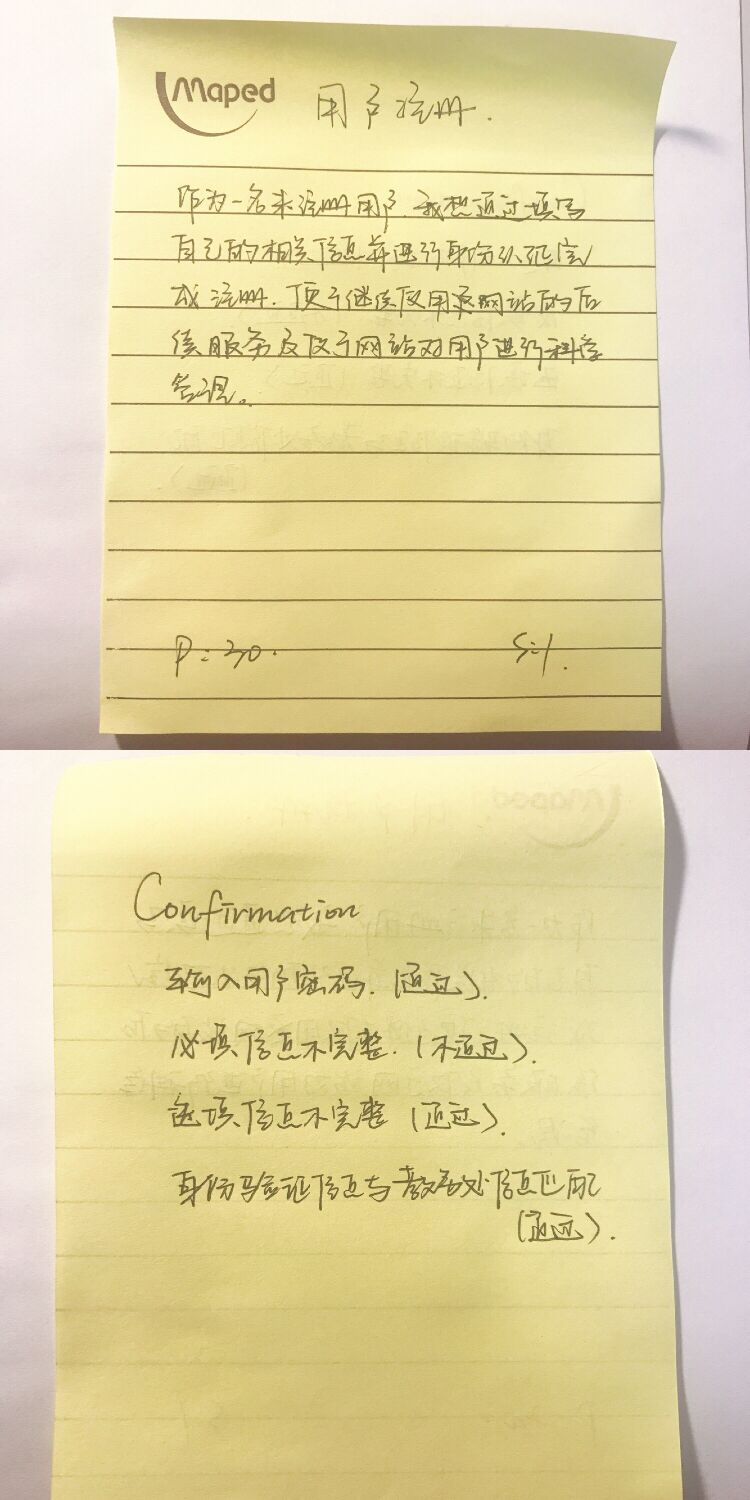 Maped
用户注册.
作为一名未注册用户,我想通过填写
自己的相关信息并进行身份认证完
成注册,便于继续使用该网站的后
续服务及便于网站对用户进行科学
管理。
P=30.
S=1.
Confirmation
输入用户密码.(通过).
必填信息不完整.(不通过).
选填信息不完整(通过).
身份验证信息与教务处信息匹配
(通过).